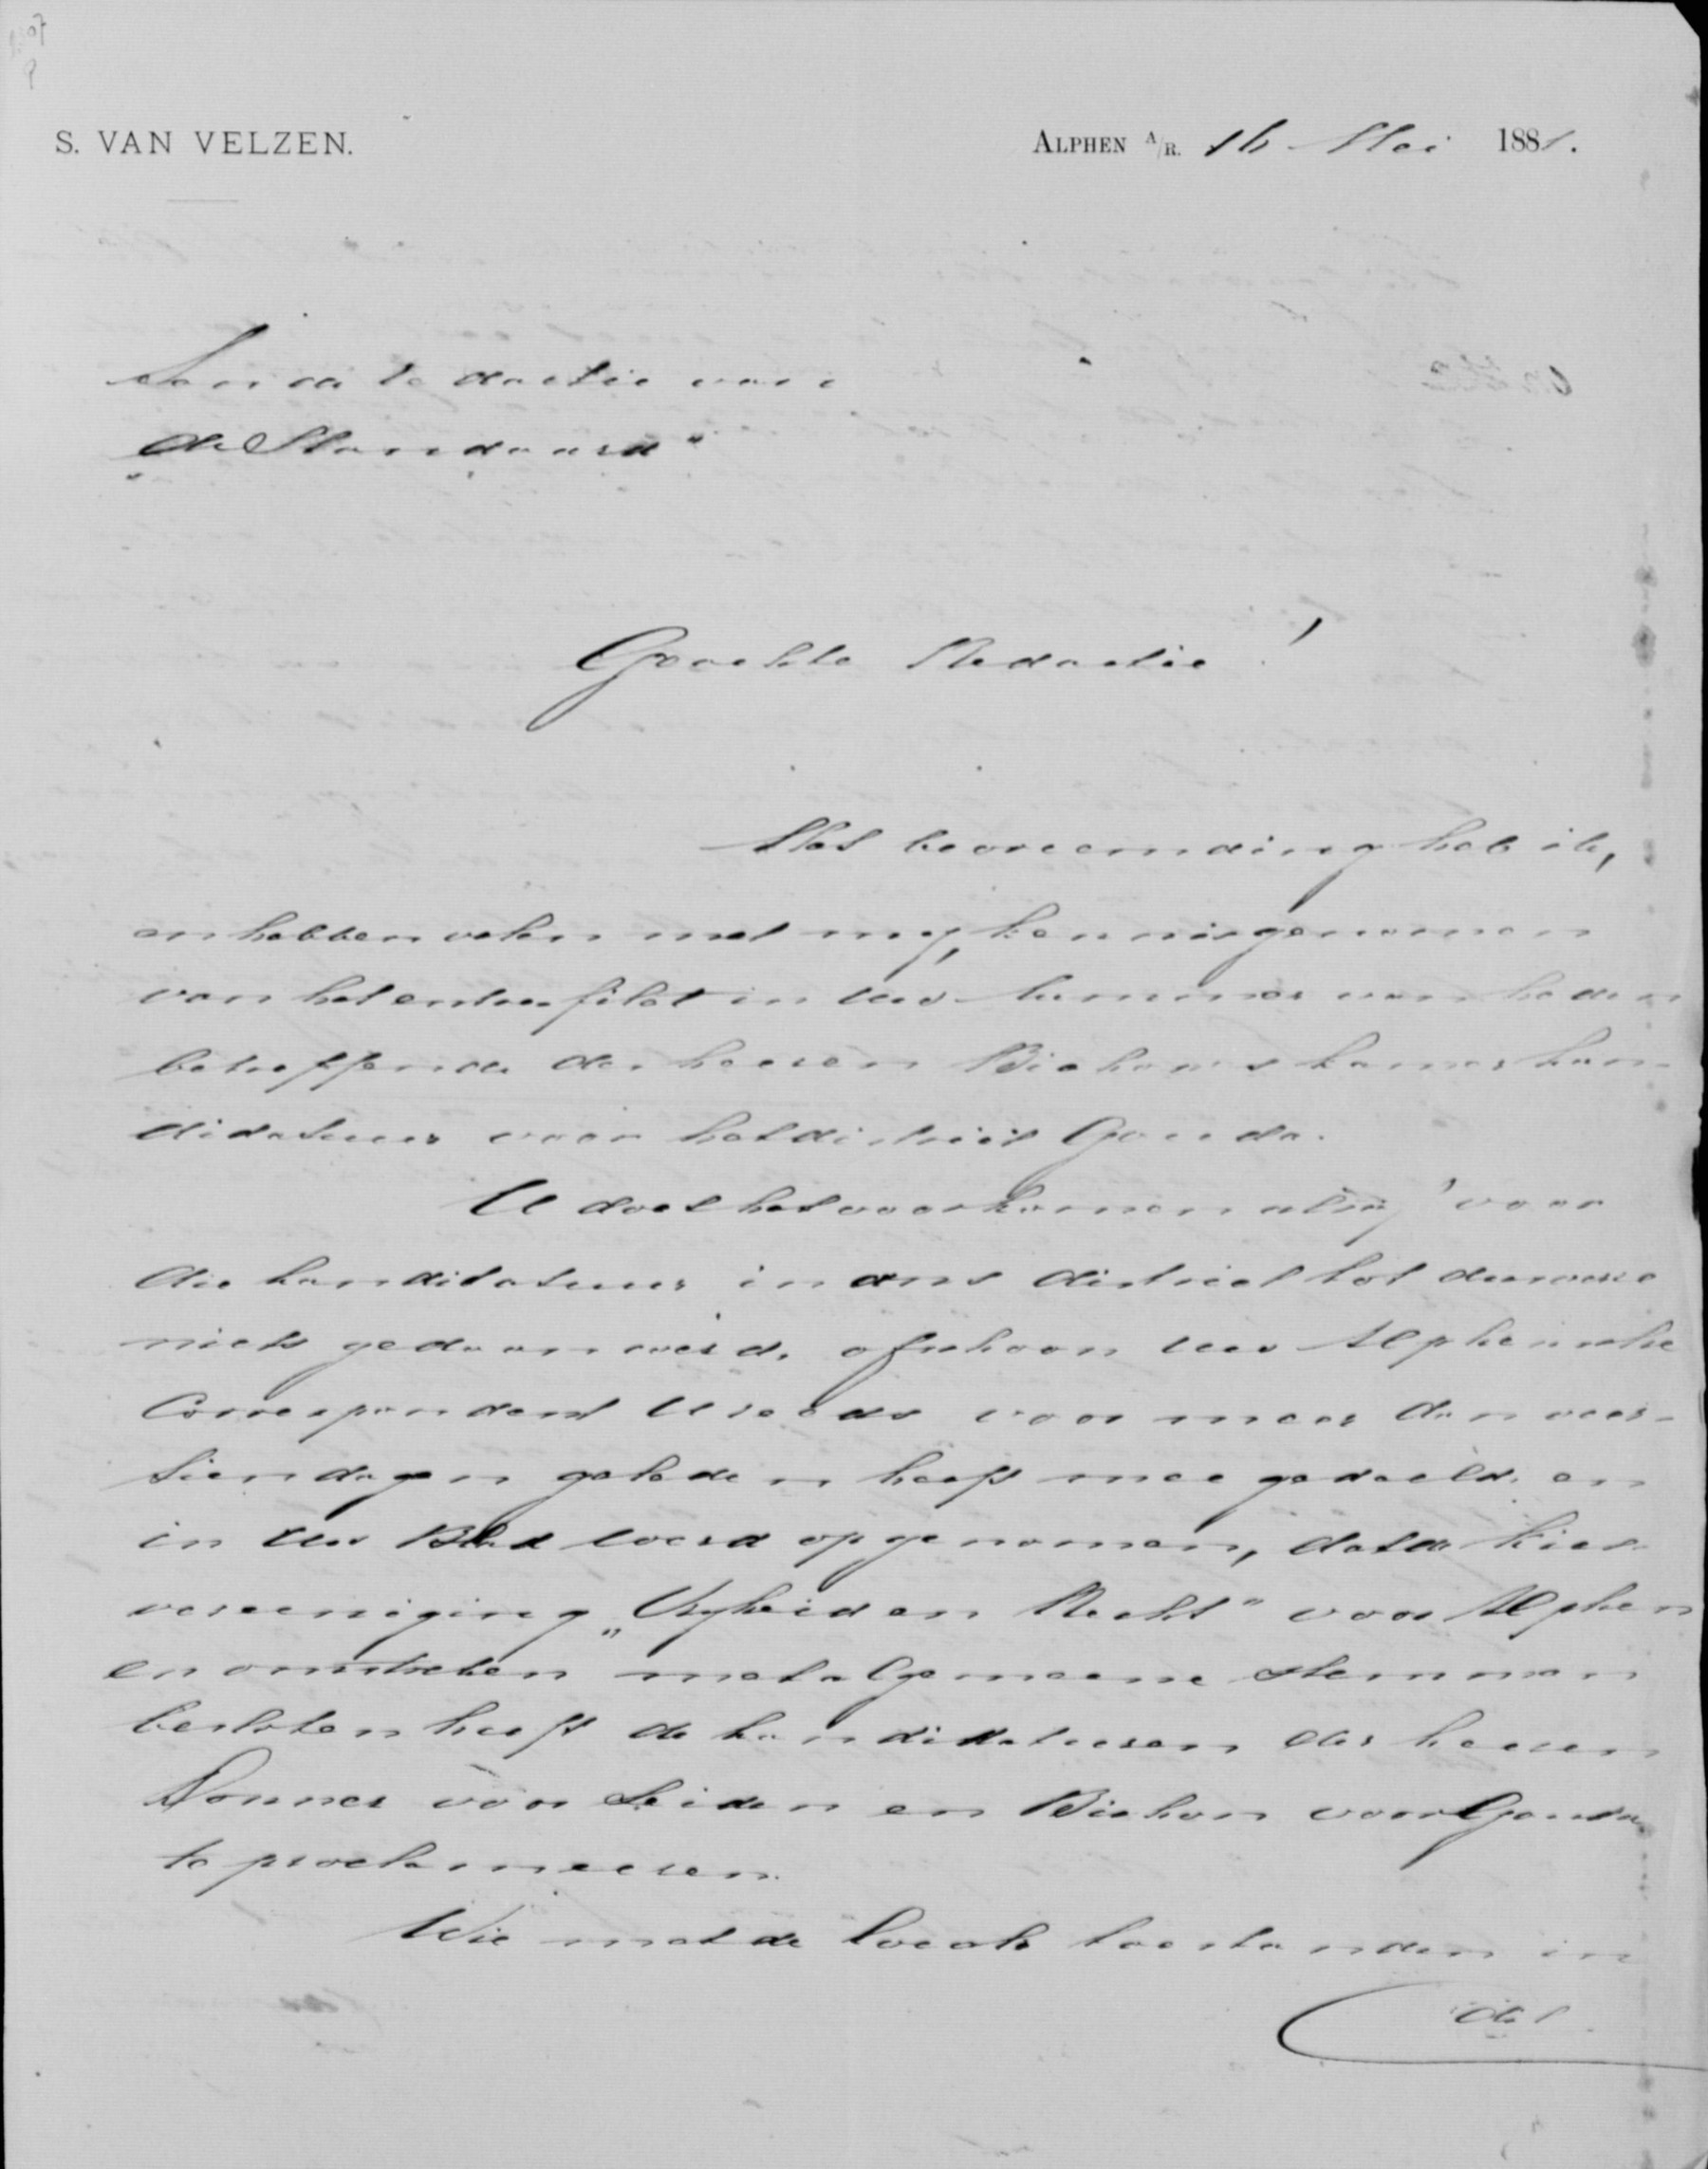 S. VAN VELZEN.
ALPHEN A/R. 16 Mei 1881.
Aan de Redactie van
„de Standaard"
Geachte Redactie!
Met bevreemding heb ik,
en hebben velen met mij, kennisgenomen
van het entrefilet in Uw nummer van heden
betreffende des heeren Bichons kamerkan-
didatuur voor het district Gouda.
U doet het voorkomen alsof voor
die kandidatuur in ons district tot dusverre
niets gedaan werd, ofschoon Uw Alphensche
Correspondent U reeds voor meer dan veer-
tien dagen geleden heeft mee gedeeld, en
in Uw Blad werd opgenomen, dat de kies-
vereeniging „Vrijheid en Recht" voor Alphen
en omstreken met algemeene stemmen
besloten heeft de kandidaturen der heeren
Donner voor Leiden en Bichon voor Gouda
te proclameeren.
Wie met de locale toestanden in
dit